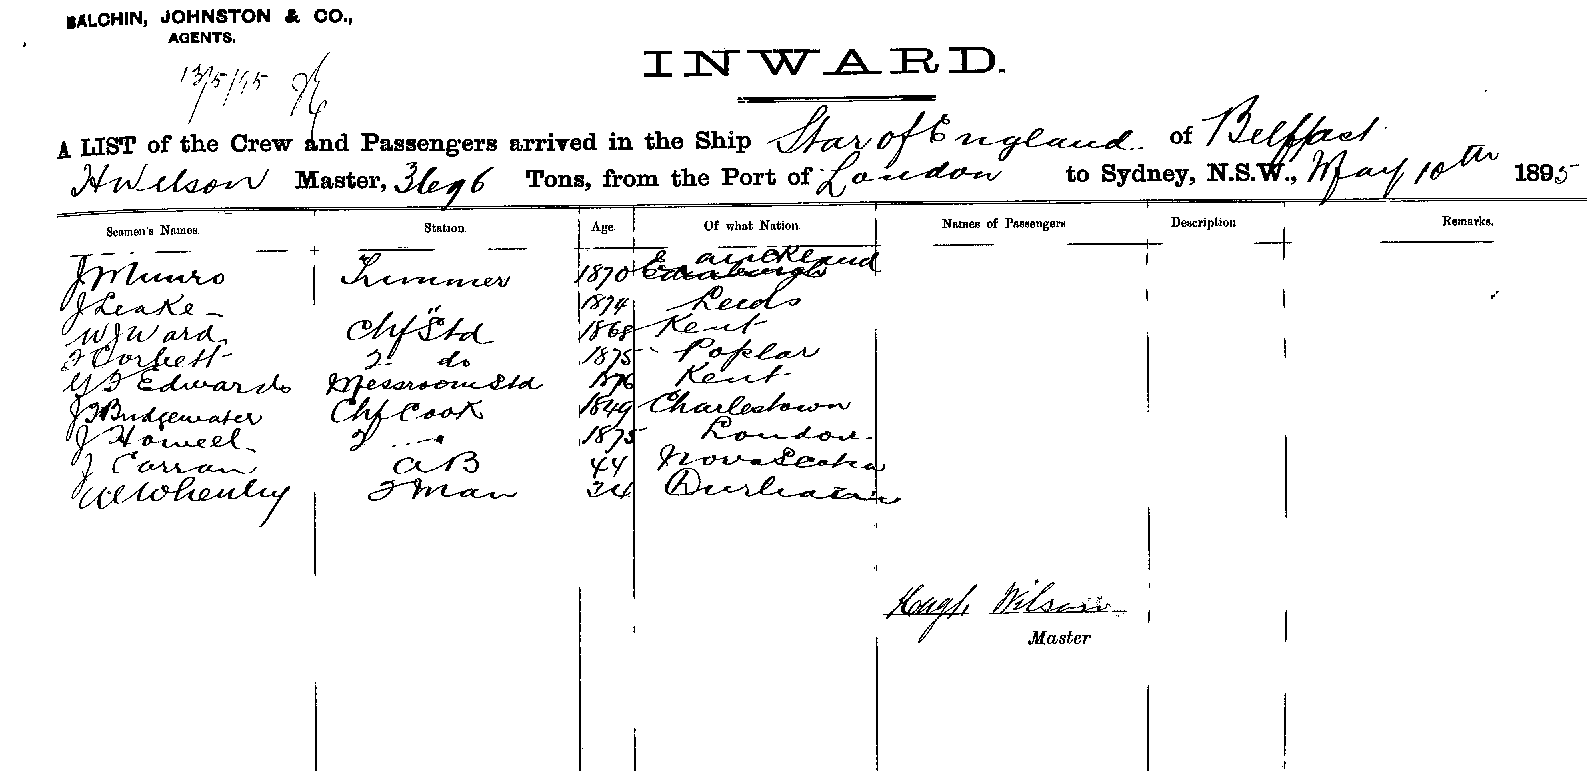 BALCHIN, JOHNSTON & CO.,
AGENTS.
13/5/95
INWARD.
A LIST of the Crew and Passengers arrived in the Ship Star of England of Belffast
H Wilson Master, Tons, from the Port of London to Sydney, N.S.W., May 10th 1895
Seamen's Names. Station. Age. Of what Nation. Names of Passengers Description Remarks.
J Munro Trimmer 1870 Edinburgh auckland
J Leake " 1874 Leeds
W J Ward Chf Std 1868 Kent
J Corbett 2 do 1875 Poplar
Edwards Messroom Std 1876 Kent
J J Bridgewater Chf Cook 1849 Charlestown
J Howell 2 " 1875 London
J Curran AB 44 Nova Scotia
Whenley F Man 34
Hugh Wilson
Master